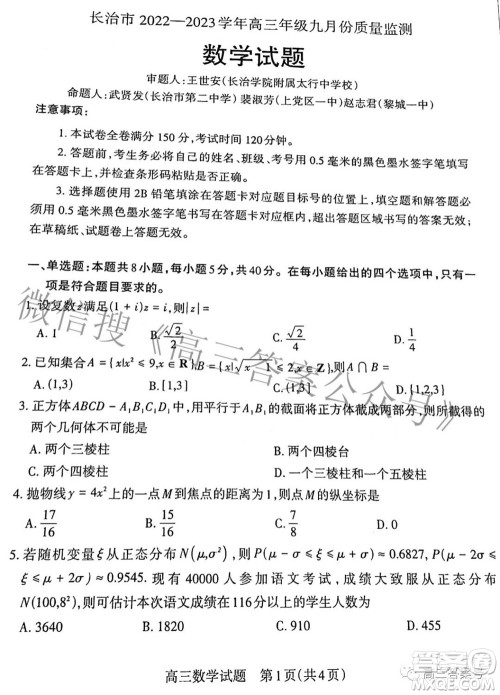 长治市 2022—2023学年高三年级九月份质量监测
数学试题
审题人:王世安(长治学院附属太行中学校)
命题人:武贤发(长治市第二中学) 裴淑芳(上党区一中)赵志君(黎城一中)
注意事项:
1. 本试卷全卷满分 150 分,考试时间 120分钟。
2. 答题前,务必将自己的姓名、班级、考号用 0.5 毫米的黑色墨水签字笔填写
在答题卡上,并检查条形码粘贴是否正确。
3. 选择题使用 2B 铅笔填涂在答题卡对应题目标号的位置上,填空题和解答题必
须用 0.5 毫米黑色墨水签字笔书写在答题卡对应框内,超出答题区域书写的答案无效;
在草稿纸、试题卷上答题无效。
一、单选题:本题共 8 小题,每小题 5 分,共 40 分。在每小题给出的四个选项中,只有一
项是符合题目要求的。
1. 设复数 z 满足(1 + i)z = i,则|z| =
A. 1 B. √2/2 C. √2/4 D. 1/4
2. 已知集合 A = {x|x² ≤ 9,x ∈ R},B = {x|√x 1 ≤ 2,x ∈ Z},则 A ∩ B =
A. (1,3) B. [1,3] C. {1,3} D. {1,2,3}
3. 正方体 ABCD - A₁B₁C₁D₁ 中,用平行于 A₁B₁ 的截面将正方体截成两部分,则所截得的
两个几何体不可能是
A. 两个三棱柱 B. 两个四棱台
C. 两个四棱柱 D. 一个三棱柱和一个五棱柱
4. 抛物线 y = 4x² 上的一点 M 到焦点的距离为 1,则点 M 的纵坐标是
A. 17/16 B. 15/16 C. 7/8 D. 0
5. 若随机变量 ξ 从正态分布 N(μ,σ²),则 P(μ - σ ≤ ξ ≤ μ + σ) ≈ 0.6827,P(μ - 2σ
≤ ξ ≤ μ + 2σ) ≈ 0.9545. 现有 40000 人参加语文考试,成绩大致服从正态分布
N(100,8²),则可估计本次语文成绩在 116 分以上的学生人数为
A. 3640 B. 1820 C. 910 D. 455
高三数学试题 第1页(共4页)
微信搜《高三答案公众号》